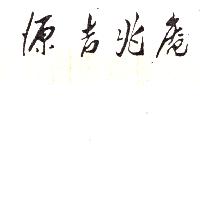 源吉兆庵